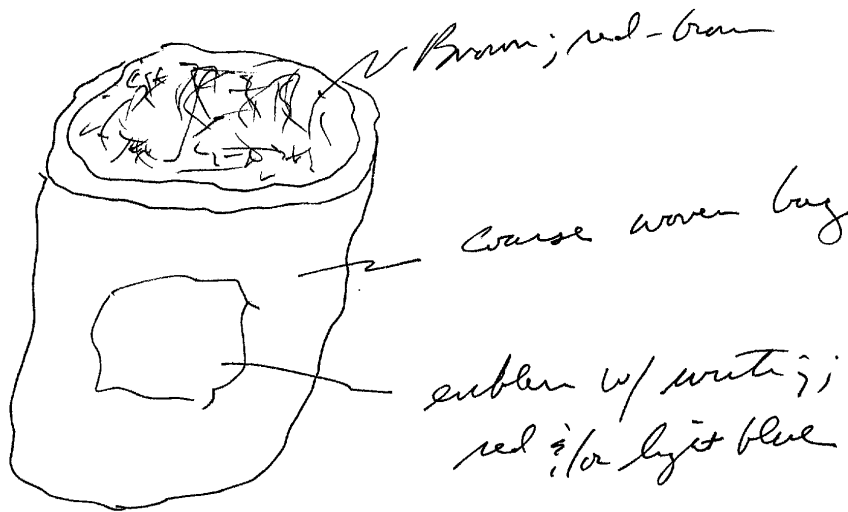 Brown; red-brown
coarse woven bag
emblem w/ writing;
red &/or light blue